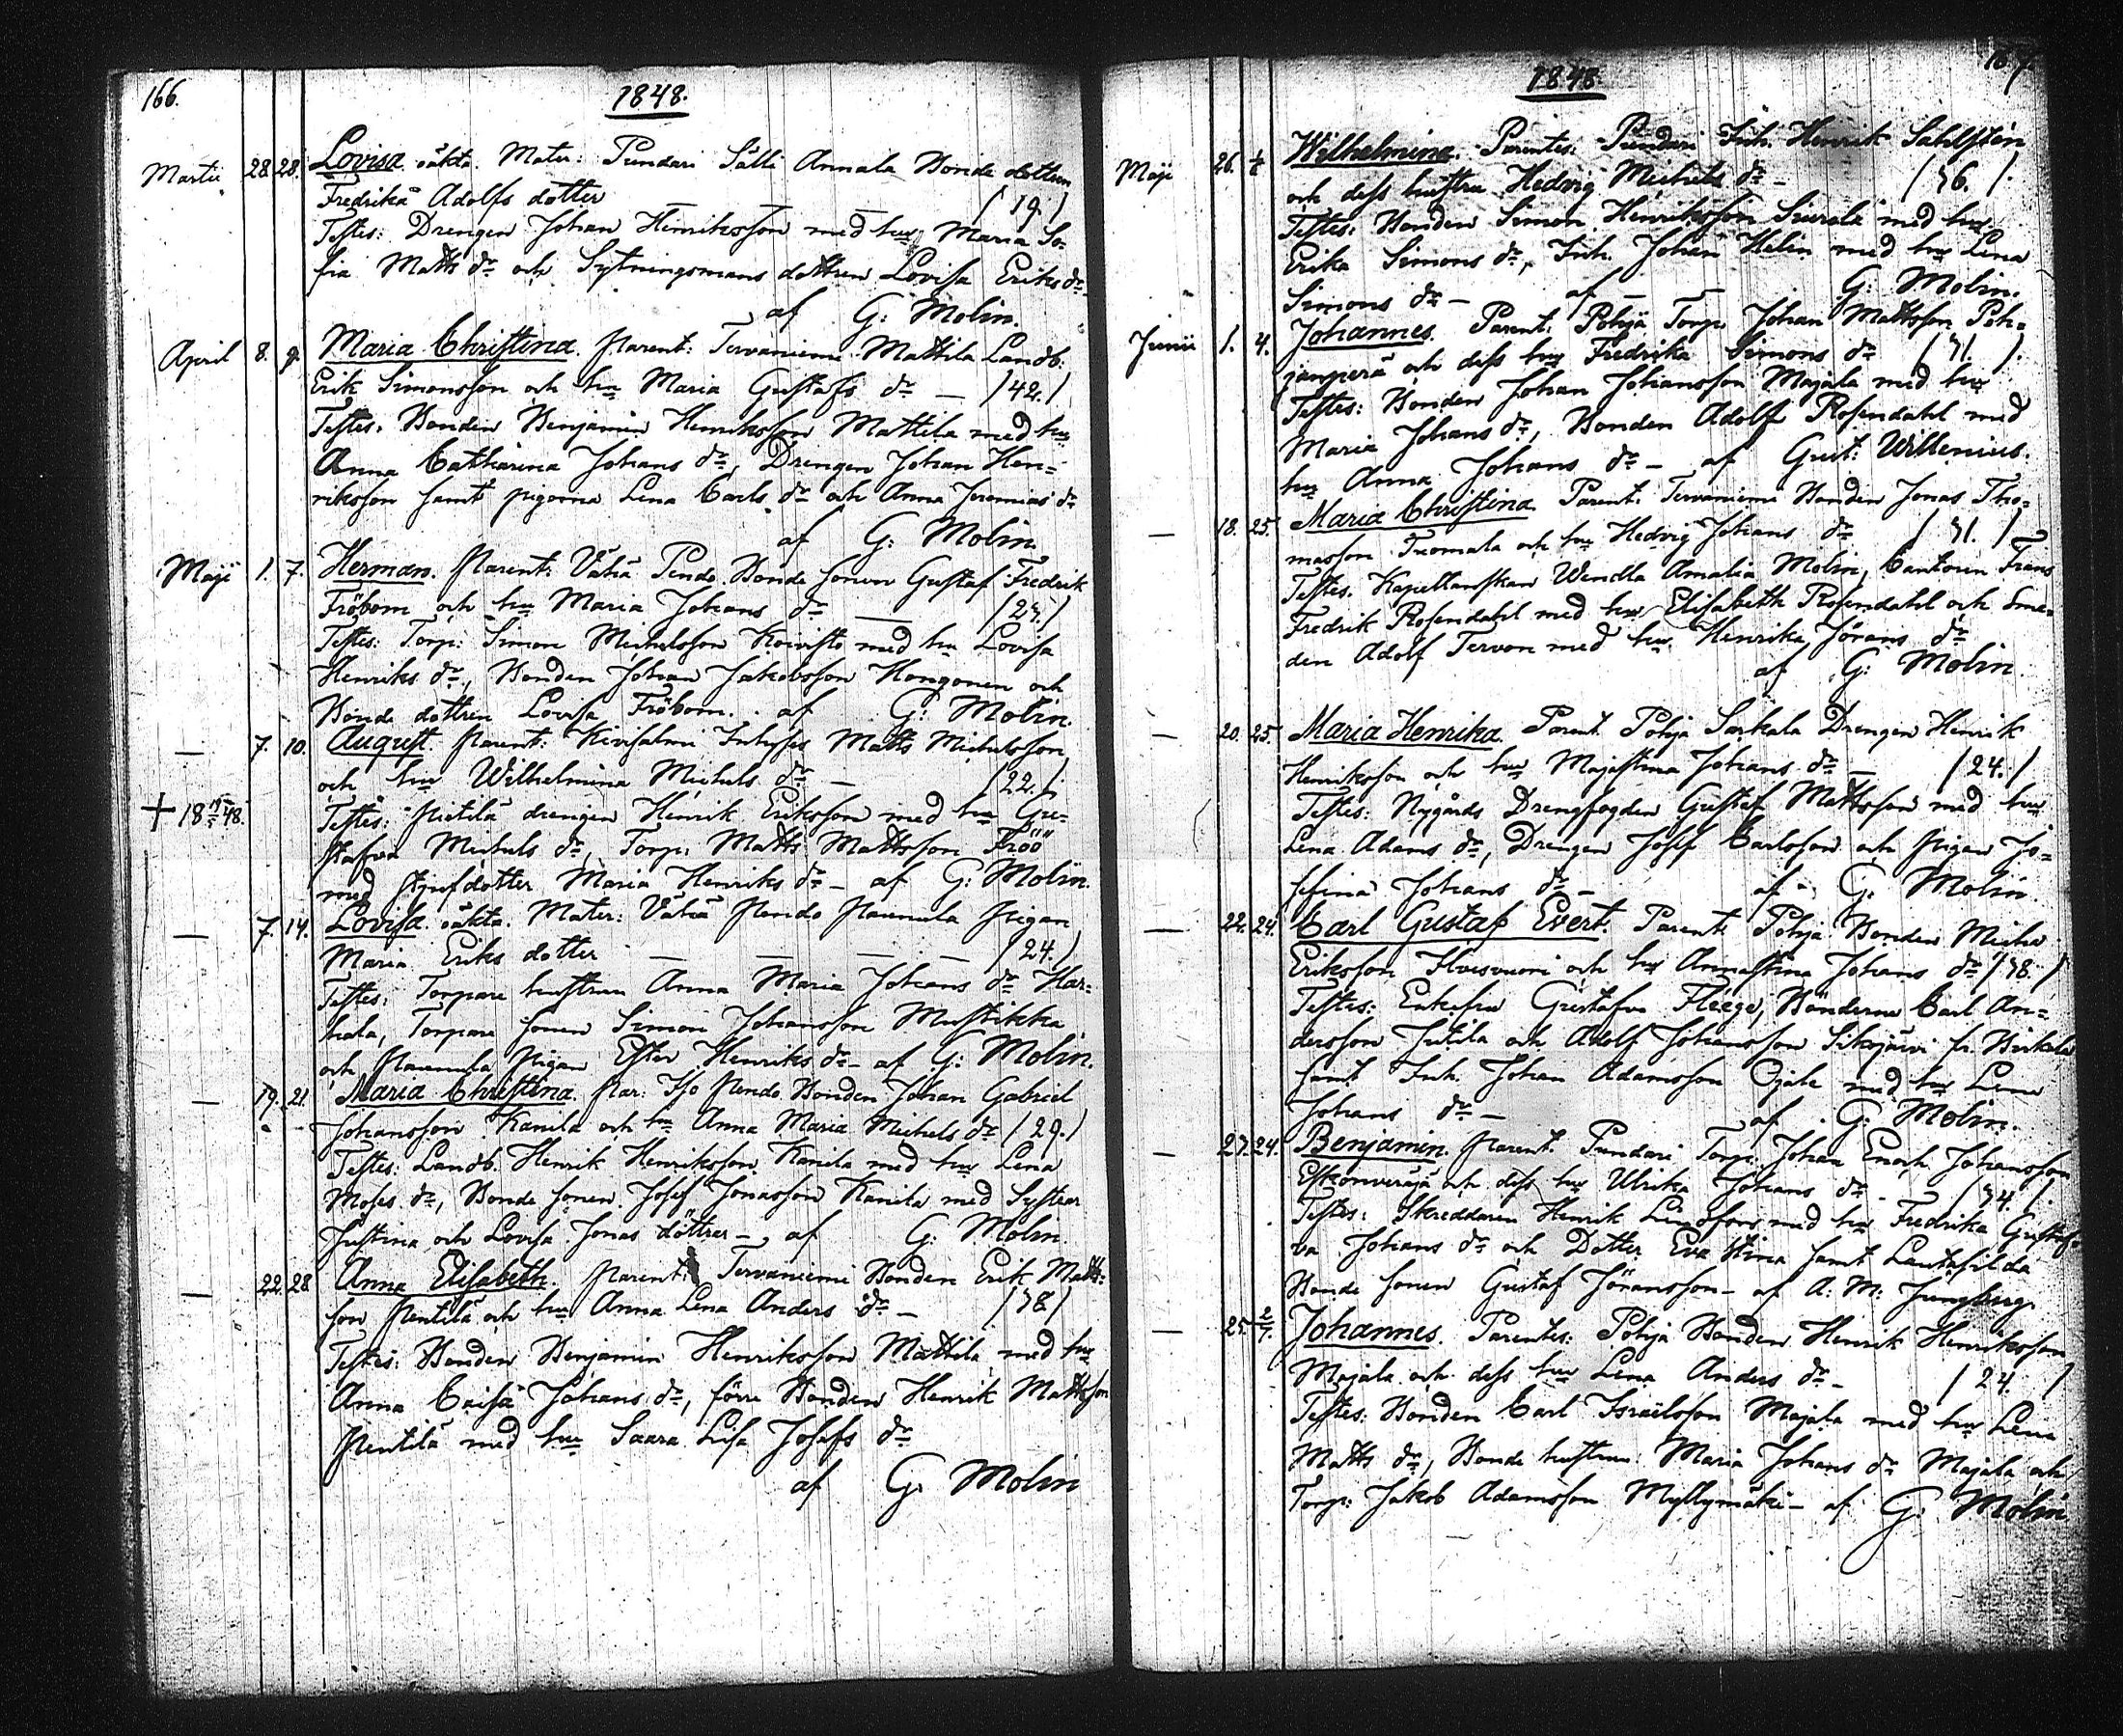 166.
1848.
Martii 28. 28. Lovisa oäkta. Mater: Pundari Sälli Annala Bonde dottren
Fredrika Adolfs dotter — — — /19./
Testes: Drengen Johan Henriksson med hu Maria So-
fia Matts dr och Sytningsmans dottren Lovisa Eriks dr
af G: Molin.
April 8. 9. Maria Christina. Parent: Tervaniemi Mattila Landb:
Erik Simonsson och hu Maria Gustafs dr — /42./
Testes: Bonden Benjamin Henriksson Mattila med hu
Anna Catharina Johans dr, Drengen Johan Hen-
riksson samt pigorna Lena Carls dr och Anna Jeremias dr
af G: Molin
Maji 1. 7. Herman. Parent: Vähä Pendo Bonde sonen Gustaf Fredrik
Fröbom och hu Maria Johans dr —
Testes: Torp: Simon Michelsson Koivisto med hu Lovisa
Henriks dr, Bonden Johan Jakobsson Hongonen och
Bonde dottren Lovisa Fröbom. af G: Molin.
— 7. 10. August. Parent: Kivisalmi Inhyses Matts Michelsson
och hu Wilhelmina Michels dr — /22./
+ 18 48. Testes: Pietilä drengen Henrik Eriksson med hu Gu-
stafva Michels dr, Torp: Matts Mattsson Fröö
med styfdotter Maria Henriks dr — af G: Molin.
— 7. 14. Lovisa. oäkta. Mater: Vähä Pendo Paunula pigan
Maria Eriks dotter — — — — /24./
Testes: Torpare hustrun Anna Maria Johans dr Har-
hala, Torpare sonen Simon Johansson Mustikka
och Paunula Pigan Ester Henriks dr — af G: Molin.
— 19. 21. Maria Christina. Par: Iso Pendo Bonden Johan Gabriel
Johansson Kanila och hu Anna Maria Michels dr /29./
Testes: Landb. Henrik Henriksson Kanila med hu Lena
Moses dr, Bonde sonen Josef Jonasson Kanila med Systrar
Justina och Lovisa Jonas döttrar — af G: Molin.
— 22. 28. Anna Elisabeth. Parent: Tervaniemi Bonden Erik Matts-
son Pentilä och hu Anna Lena Anders dr — /38/
Testes: Bonden Benjamin Henriksson Mattila med hu
Anna Caisa Johans dr, förre Bonden Henrik Mattsson
Pentilä med hu Saara Lisa Josefs dr
af G. Molin
1848.
Maji 26. Wilhelmina. Parentes: Pundari Inh. Henrik Sahlsten
och dess hustru Hedvig Michels dr — /36./
Testes: Bonden Simon Henriksson Siurala med hu
Erika Simons dr, Inh. Johan Helin med hu Lena
Simons dr — af — — G: Molin.
Junii 1. 4. Johannes. Parent: Pohja Torp: Johan Mattsson Poh-
janperä och dess hu Fredrika Simons dr /31./
Testes: Bonden Johan Johansson Majala med hu
Maria Johans dr, Bonden Adolf Rosendahl med
hu Anna Johans dr — af Gust: Willenius.
— 18. 25. Maria Christina. Parent: Tervaniemi Bonden Jonas Tho-
masson Tuomala och hu Hedvig Johans dr /31./
Testes. Kapellanskan Wendla Amalia Molin, Cantorn Frans
Fredrik Rosendahl med hu Elisabeth Rosendahl och Sme-
den Adolf Tervon med hu Henrika Jörans dr
af G: Molin
— 20. 25. Maria Henrika. Parent. Pohja Sarkala Drengen Henrik
Henriksson och hu Majastina Johans dr — /24./
Testes: Nygårds Drengfogden Gustaf Mattsson med hu
Lena Adams dr, Drengen Josef Carlsson och Pigan Jo-
sefina Johans dr — af G: Molin
— 22. 24. Carl Gustaf Evert. Parent: Pohja Bonden Michel
Eriksson Ilvesvuori och hu Annastina Johans dr /38./
Testes: Enkefru Gustafva Fleege, Bönderne Carl An-
dersson Jutila och Adolf Johansson Sikojärvi fr. Birkala
samt Inh. Johan Adamsson Ojala med hu Lena
Johans dr — af G: Molin.
— 27. 24. Benjamin. Parent. Pundari Torp: Johan Enoch Johansson
och dess hu Ulrika Johans dr — /34./
Testes: Skreddaren Henrik Lindfors med hu Fredrika Gustaf-
va Johans dr och Dotter Eva Stina samt Lautasilda
Bonde sonen Gustaf Jöransson — af A: M: Jungberg.
— 25. 2/7. Johannes. Parentes: Pohja Bonden Henrik Henriksson
Majala och dess hu Lena Anders dr — /24./
Testes: Bonden Carl Israelsson Majala med hu Lena
Matts dr, Bonde hustrun Maria Johans dr Majala och
Torp: Jakob Adamsson Myllymäki — af G: Molin